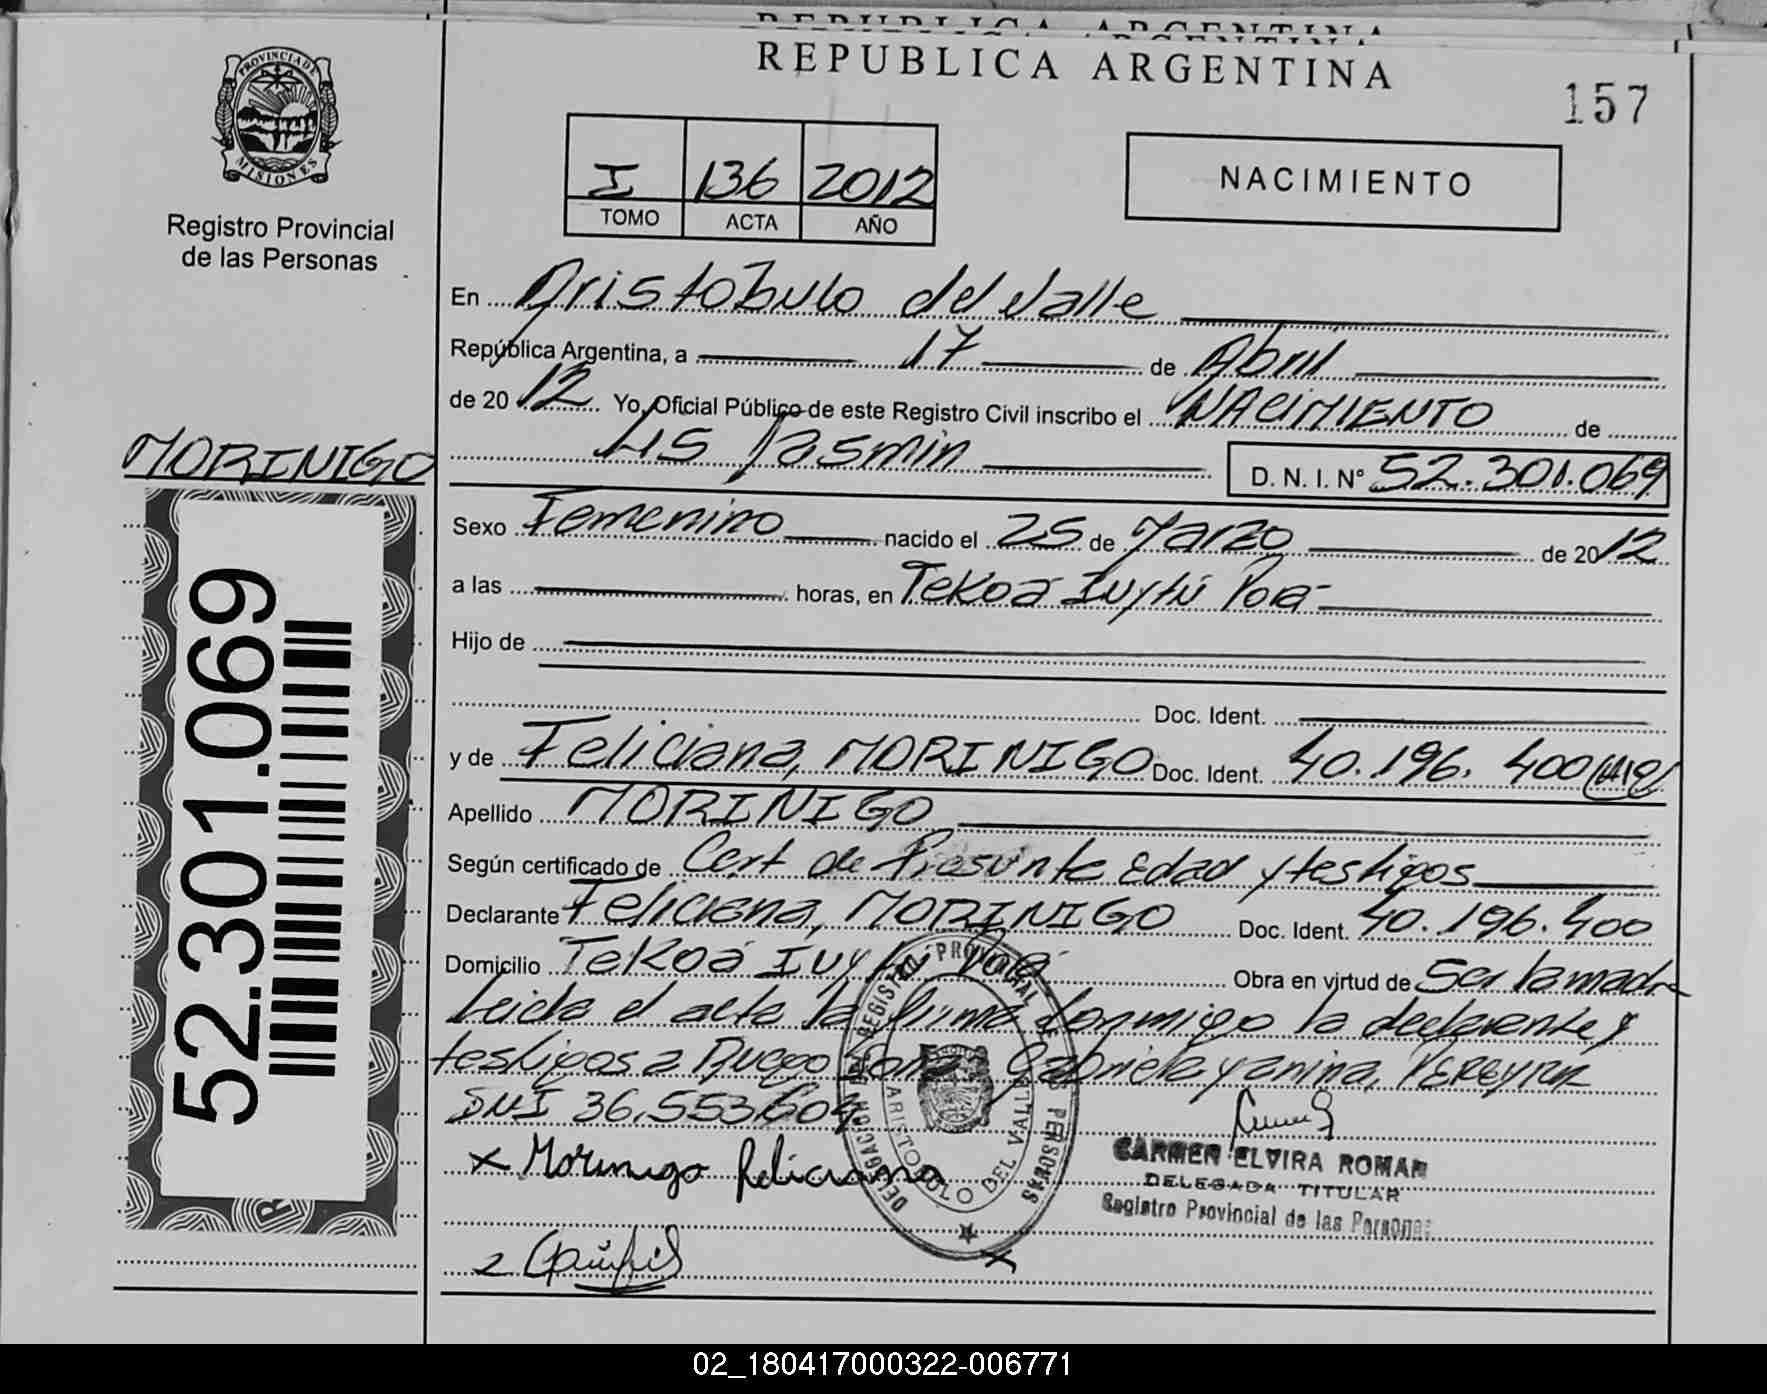 REPUBLICA ARGENTINA
REPUBLICA ARGENTINA
157
PROVINCIA DE MISIONES
Registro Provincial
de las Personas
I 136 2012
TOMO ACTA AÑO
NACIMIENTO
En Aristobulo del Valle
República Argentina, a 17 de Abril
de 2012 Yo, Oficial Público de este Registro Civil inscribo el NACIMIENTO de
Lis Jasmin D. N. I. N° 52.301.069
MORINIGO
52.301.069
Sexo Femenino nacido el 25 de Marzo de 2012
a las horas, en Tekoá Ivytú Porá
Hijo de
Doc. Ident.
y de Feliciana, MORINIGO Doc. Ident. 40.196.400
Apellido MORINIGO
Según certificado de Cert de Presunta Edad y testigos
Declarante Feliciana, MORINIGO Doc. Ident. 40.196.400
Domicilio Tekoá Ivytú Porá Obra en virtud de Ser la madre
Leída el acta la firma conmigo la declarante y
testigos a Ruego Gabriela Yanina, PEREYRA
DNI 36.553.604
x Morinigo Feliciana
DELEGACION DEL REGISTRO PROVINCIAL DE LAS PERSONAS
ARISTOBULO DEL VALLE
CARMEN ELVIRA ROMAN
DELEGADA TITULAR
Registro Provincial de las Personas
02_180417000322-006771